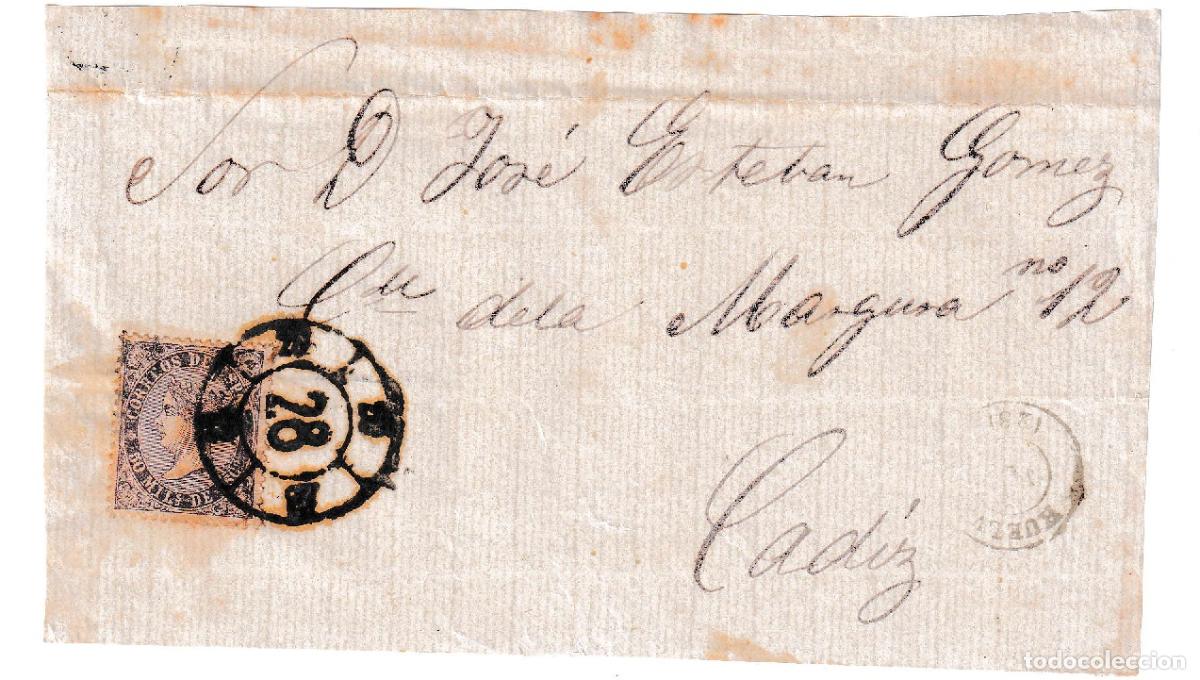 Sor D José Esteban Gomez
Cll dela Margura nº 12
Cadiz
CORREOS DE
MILS. DE
28
HUELV
(28)
todocoleccion